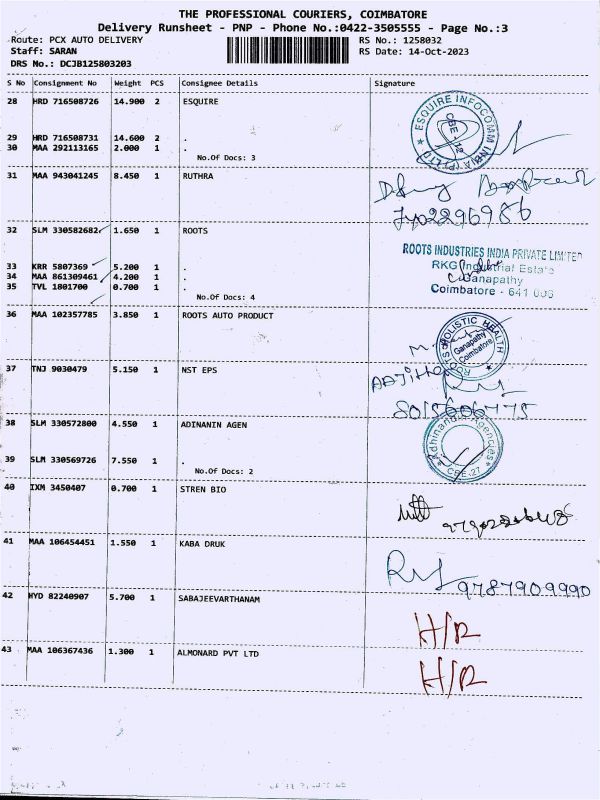 THE PROFESSIONAL COURIERS, COIMBATORE
Delivery Runsheet - PNP - Phone No.:0422-3505555 - Page No.:3
Route: PCX AUTO DELIVERY RS No.: 1258032
Staff: SARAN RS Date: 14-Oct-2023
DRS No.: DCJB125803203
S No Consignment No Weight PCS Consignee Details Signature
28 HRD 716508726 14.900 2 ESQUIRE
ESQUIRE INFOCOMM INDIA (P) LTD
CBE - 12
29 HRD 716508731 14.600 2 .
30 MAA 292113165 2.000 1 .
No.Of Docs: 3
31 MAA 943041245 8.450 1 RUTHRA
32 SLM 330582682 1.650 1 ROOTS
ROOTS INDUSTRIES INDIA PRIVATE LIMITED
33 KRR 5807369 5.200 1 .
RKG Industrial Estate
34 MAA 861309461 4.200 1 .
Ganapathy
35 TVL 1801700 0.700 1 .
Coimbatore - 641 006
No.Of Docs: 4
36 MAA 102357785 3.850 1 ROOTS AUTO PRODUCT
ROOTS HOLISTIC HEALTH
Ganapathy
Coimbatore
37 TNJ 9030479 5.150 1 NST EPS
8015606775
38 SLM 330572800 4.550 1 ADINANIN AGEN
Adhinandh Agencies
CBE-27
39 SLM 330569726 7.550 1 .
No.Of Docs: 2
40 IXM 3450407 0.700 1 STREN BIO
41 MAA 106454451 1.550 1 KABA DRUK
9787909990
42 HYD 82240907 5.700 1 SABAJEEVARTHANAM
H/R
43 MAA 106367436 1.300 1 ALMONARD PVT LTD
H/R